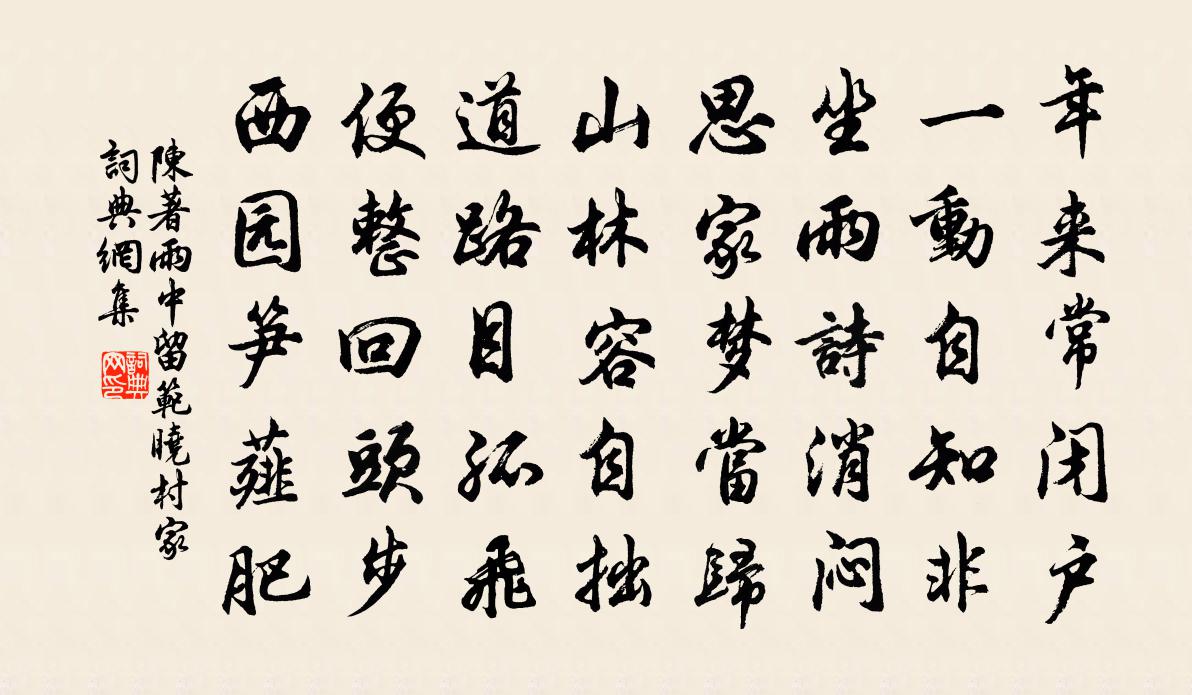 年来常闭户
一動自知非
坐雨詩消闷
思家梦當歸
山林容自拙
道路目孤飛
便整回頭步
西园笋薤肥
陳著雨中留範曉村家
詞典網集
詞典网印